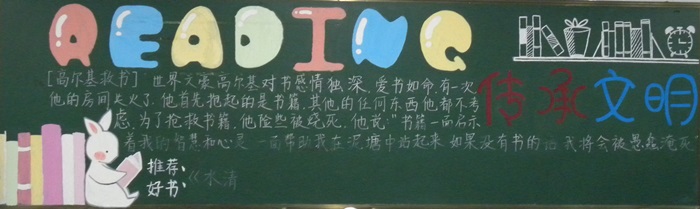 READING
[高尔基救书] 世界文豪高尔基对书感情独深,爱书如命,有一次
他的房间失火了,他首先抱起的是书籍,其他的任何东西他都不考
虑,为了抢救书籍,他险些被烧死,他说:"书籍一面启示
着我的智慧和心灵,一面帮助我在泥塘中站起来,如果没有书的话,我将会被愚蠢淹死
传承文明
推荐
好书:
《水浒